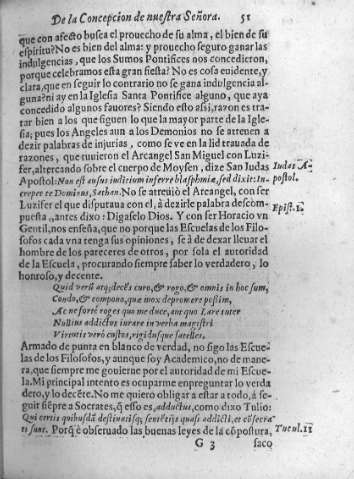 De la Concepcion de nuestra Señora. 51
que con afecto busca el prouecho de su alma, el bien de su
espiritu? No es bien del alma: y prouecho seguro ganar las
indulgencias, que los Sumos Pontifices nos concedieron,
porque celebramos esta gran fiesta? No es cosa euidente, y
clara, que en seguir lo contrario no se gana indulgencia al-
guna? ni ay en la Iglesia Santa Pontifice alguno, que aya
concedido algunos fauores? Siendo esto assi, razon es tra-
tar bien a los que siguen lo que la mayor parte de la Igle-
sia; pues los Angeles aun a los Demonios no se atreuen a
dezir palabras de injurias, como se ve en la lid trauada de
razones, que tuuieron el Arcangel San Miguel con Luzi-
fer, altercando sobre el cuerpo de Moysen, dize San Iudas
Apostol: Non est ausus iudicium inferre blasphemiæ, sed dixit: In-
creper te Dominus, Sathan. No se atreuiò el Arcangel, con ser
Luzifer el que disputaua con el, à dezirle palabra descom-
puesta, antes dixo: Digaselo Dios. Y con ser Horacio vn
Gentil, nos enseña, que no porque las Escuelas de los Filo-
sofos cada vna tenga sus opiniones, se à de dexar lleuar el
hombre de los pareceres de otros, por sola el autoridad
de la Escuela, procurando siempre saber lo verdadero, lo
honroso, y decente.
Iudas A-
postol.
Epist. 1.
Quid verũ atq; decẽs curo, & rogo, & omnis in hoc sum,
Condo, & compono, quæ mox depromere possim,
Ac ne fortè roges quo me duce, quo Lare tuter
Nullius addictus iurare in verba magistri
Virtutis veræ custos, rigidusque satelles.
Armado de punta en blanco de verdad, no sigo las Escue-
las de los Filosofos, y aunque soy Academico, no de mane-
ra, que siempre me gouierne por el autoridad de mi Escue-
la. Mi principal intento es ocuparme en preguntar lo verda
dero, y lo decẽte. No me quiero obligar a estar a todo, à se-
guir siẽpre a Socrates, q̃ esso es, adductus, como dixo Tulio:
Qui certis quibusdã destinatisq; sentẽtijs quasi addicti, et cõsecra-
ti sunt. Porq̃ è obseruado las buenas leyes de la cõpostura,
Tucul. 11
G 3 saco